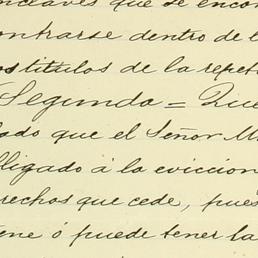 nclaves que se encon
ontrarse dentro de l
os títulos de la repet
Segundo = Que
ado que el Señor M
bligado á la eviccion
rechos que cede, pues
iene ó puede tener la